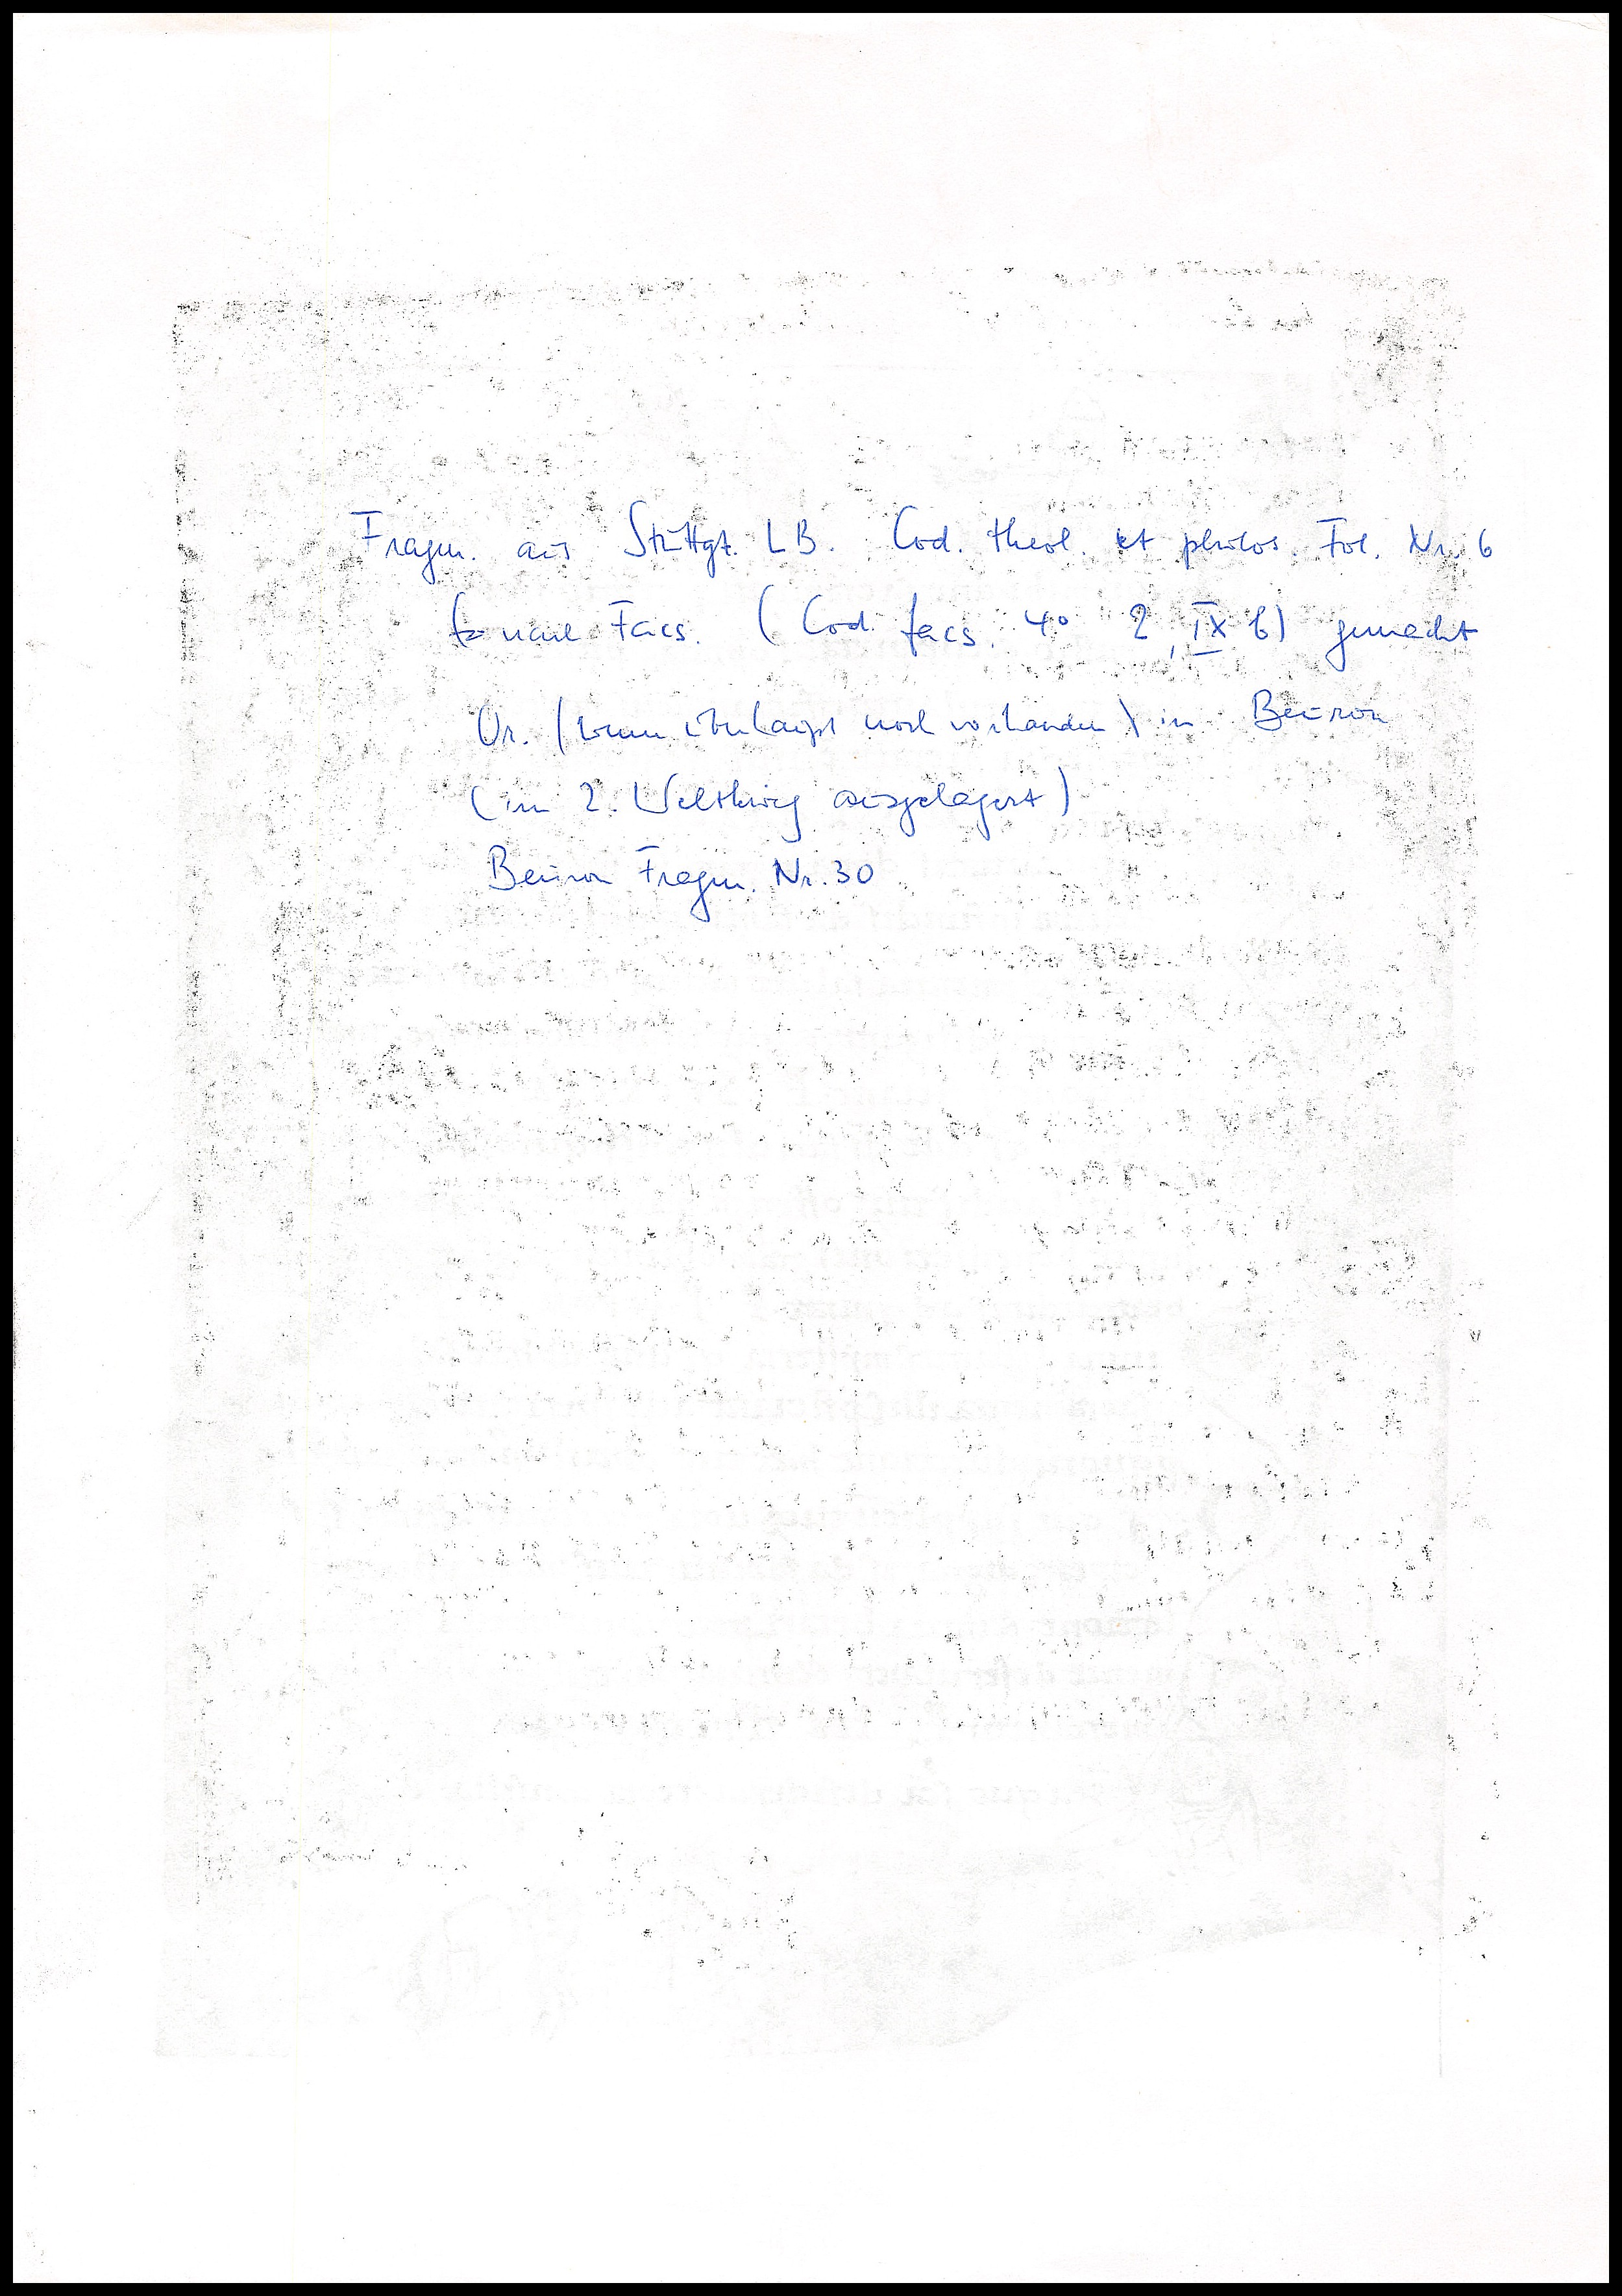 Fragm. aus Stuttgt. LB. Cod. theol. et philos. Fol. Nr. 6
nach Facs. (Cod. facs. 4° 2, IX 6) gemacht
Or. (wenn überhaupt noch vorhanden) in Beuron
(im 2. Weltkrieg ausgelagert)
Beuron Fragm. Nr. 30